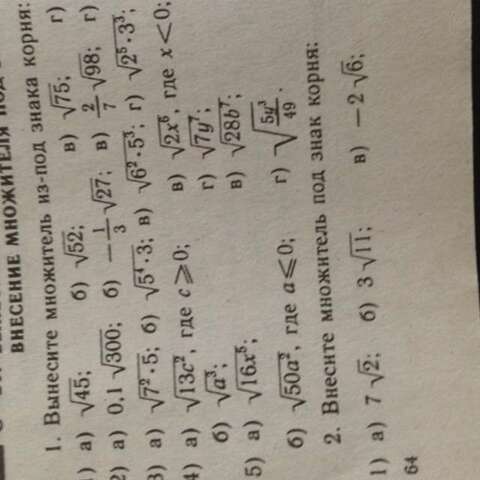 ВНЕСЕНИЕ МНОЖИТЕЛЯ ПОД
1. Вынесите множитель из-под знака корня:
1) а) √45; б) √52; в) √75; г)
2) а) 0,1 √300; б) −1/3 √27; в) 2/7 √98; г)
3) а) √(7²·5); б) √(5⁴·3); в) √(6²·5³); г) √(2⁵·3³;
4) а) √(13c²), где c ⩾ 0; в) √(2x⁶), где x < 0;
б) √(a³); г) √(7y⁷);
5) а) √(16x⁵; в) √(28b⁷);
б) √(50a²), где a ⩽ 0; г) √(5y³/49).
2. Внесите множитель под знак корня:
1) а) 7 √2; б) 3 √11; в) −2 √6;
64